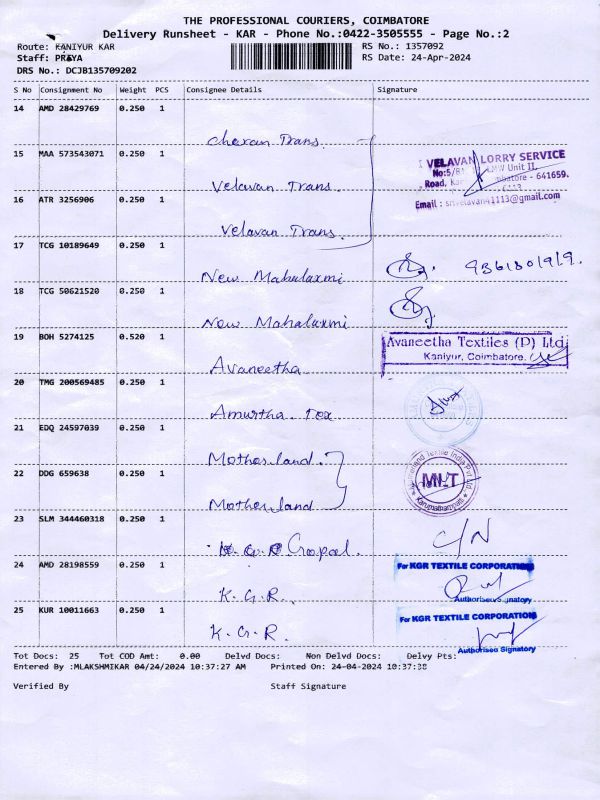 THE PROFESSIONAL COURIERS, COIMBATORE
Delivery Runsheet - KAR - Phone No.:0422-3505555 - Page No.:2
Route: KANIYUR KAR
RS No.: 1357092
Staff: PRIYA
RS Date: 24-Apr-2024
DRS No.: DCJB135709202
S No Consignment No Weight PCS Consignee Details Signature
14 AMD 28429769 0.250 1
Cheran Trans.
15 MAA 573543071 0.250 1
VELAVAN LORRY SERVICE
No:5/8 Unit II,
Road, batore - 641659.
Velavan Trans.
16 ATR 3256906 0.250 1
Email : srivelavan41113@gmail.com
Velavan Trans.
17 TCG 10189649 0.250 1
New Mahalaxmi
18 TCG 50621520 0.250 1
New Mahalaxmi
19 BOH 5274125 0.520 1
Avaneetha Textiles (P) Ltd
Kaniyur, Coimbatore.
Avaneetha
20 TMG 200569485 0.250 1
Amurtha Tex
21 EDQ 24597039 0.250 1
Motherland.
22 DDG 659638 0.250 1
Motherland Textile India Pvt Ltd
MLT
Karumathampatti
Motherland
23 SLM 344460318 0.250 1
Gopal.
C/N
24 AMD 28198559 0.250 1
For KGR TEXTILE CORPORATION
K.G.R.
Authorised Signatory
25 KUR 10011663 0.250 1
For KGR TEXTILE CORPORATION
K.G.R.
Authorised Signatory
Tot Docs: 25 Tot COD Amt: 0.00 Delvd Docs: Non Delvd Docs: Delvy Pts:
Entered By :MLAKSHMIKAR 04/24/2024 10:37:27 AM Printed On: 24-04-2024 10:37:38
Verified By Staff Signature